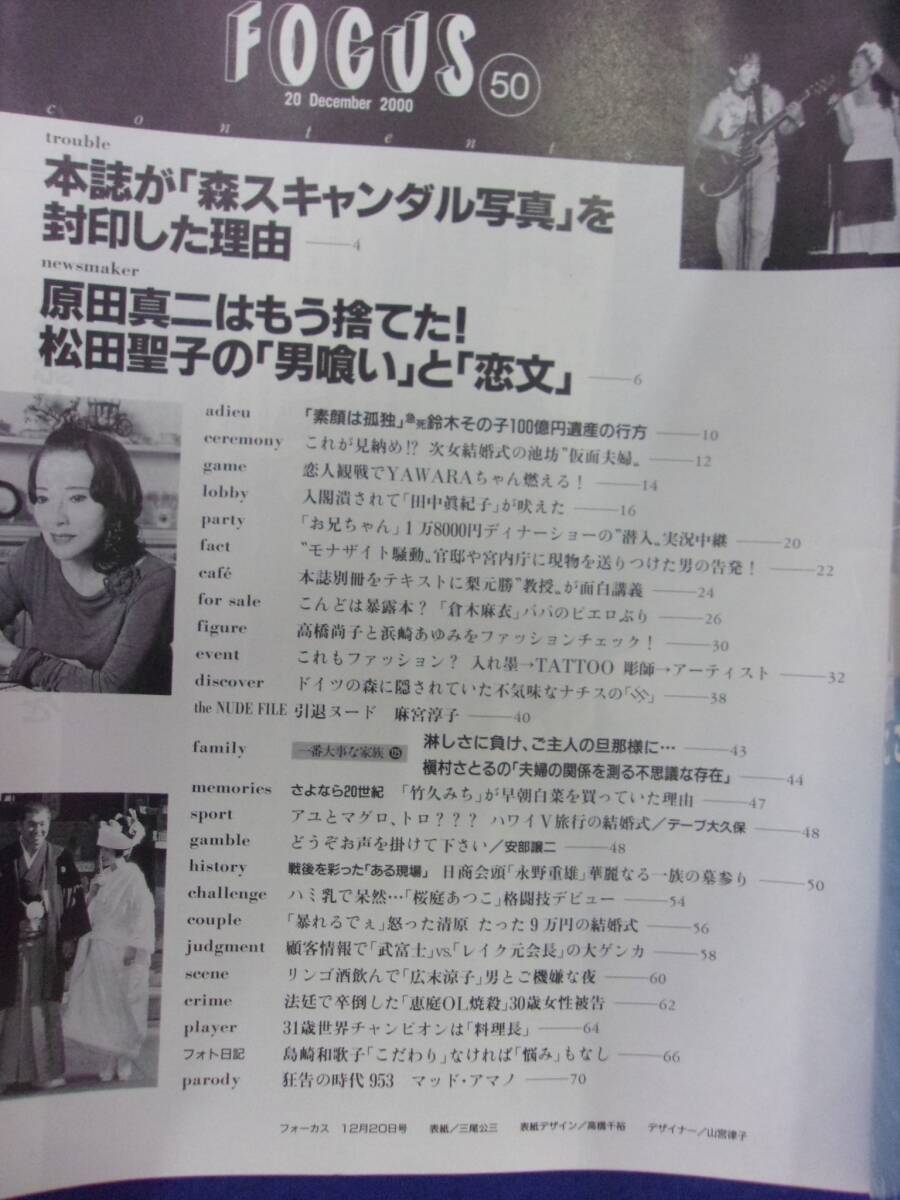 FOCUS
50
20 December 2000
contents
trouble
本誌が「森スキャンダル写真」を
封印した理由 4
newsmaker
原田真二はもう捨てた!
松田聖子の「男喰い」と「恋文」 6
adieu 「素顔は孤独」急死鈴木その子100億円遺産の行方 10
ceremony これが見納め!? 次女結婚式の池坊"仮面夫婦" 12
game 恋人観戦でYAWARAちゃん燃える! 14
lobby 入閣潰されて「田中眞紀子」が吠えた 16
party 「お兄ちゃん」1万8000円ディナーショーの"潜入"実況中継 20
fact "モナザイト騒動"官邸や宮内庁に現物を送りつけた男の告発! 22
café 本誌別冊をテキストに梨元勝"教授"が面白講義 24
for sale こんどは暴露本? 「倉木麻衣」パパのピエロぶり 26
figure 高橋尚子と浜崎あゆみをファッションチェック! 30
event これもファッション? 入れ墨→TATTOO 彫師→アーティスト 32
discover ドイツの森に隠されていた不気味なナチスの「卐」 38
the NUDE FILE 引退ヌード 麻宮淳子 40
family 一番大事な家族 淋しさに負け、ご主人の旦那様に… 43
槇村さとるの「夫婦の関係を測る不思議な存在」 44
memories さよなら20世紀 「竹久みち」が早朝白菜を買っていた理由 47
sport アユとマグロ、トロ??? ハワイV旅行の結婚式/テーブ大久保 48
gamble どうぞお声を掛けて下さい/安部譲二 48
history 戦後を彩った「ある現場」 日商会頭「永野重雄」華麗なる一族の墓参り 50
challenge ハミ乳で呆然…「桜庭あつこ」格闘技デビュー 54
couple 「暴れるでぇ」怒った清原 たった9万円の結婚式 56
judgment 顧客情報で「武富士」vs.「レイク元会長」の大ゲンカ 58
scene リンゴ酒飲んで「広末涼子」男とご機嫌な夜 60
crime 法廷で卒倒した「恵庭OL焼殺」30歳女性被告 62
player 31歳世界チャンピオンは「料理長」 64
フォト日記 島崎和歌子「こだわり」なければ「悩み」もなし 66
parody 狂告の時代 953 マッド・アマノ 70
フォーカス 12月20日号 表紙/三尾公三 表紙デザイン/高橋千裕 デザイナー/山宮律子